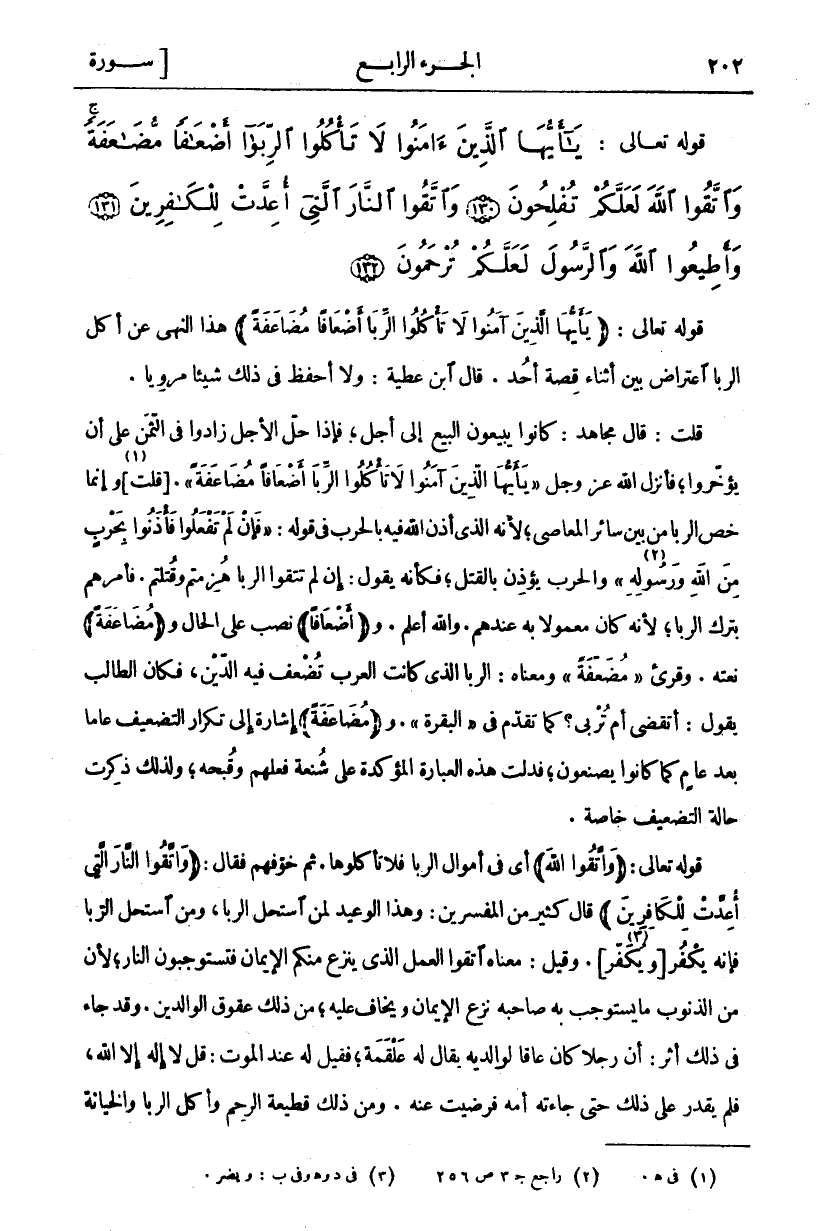 ٢٠٢ الجزء الرابع [ سورة
قوله تعالى : يَـٰٓأَيُّهَا ٱلَّذِينَ ءَامَنُوا لَا تَأْكُلُوا ٱلرِّبَوٰٓا أَضْعَـٰفًا مُّضَـٰعَفَةً ۖ
وَٱتَّقُوا ٱللَّهَ لَعَلَّكُمْ تُفْلِحُونَ ١٣٠ وَٱتَّقُوا ٱلنَّارَ ٱلَّتِىٓ أُعِدَّتْ لِلْكَـٰفِرِينَ ١٣١
وَأَطِيعُوا ٱللَّهَ وَٱلرَّسُولَ لَعَلَّكُمْ تُرْحَمُونَ ١٣٢
قوله تعالى : ﴿ يَأَيُّهَا الَّذِينَ آمَنُوا لَا تَأْكُلُوا الرِّبَا أَضْعَافًا مُضَاعَفَةً ﴾ هذا النهى عن أكل
الربا ٱعتراض بين أثناء قصة أُحد . قال ٱبن عطية : ولا أحفظ فى ذلك شيئا مرويا .
قلت : قال مجاهد : كانوا يبيعون البيع إلى أجل؛ فإذا حلّ الأجل زادوا فى الثمَّن على أن
يؤخّروا؛ فأنزل الله عز وجل «يَأَيُّهَا الَّذِينَ آمَنُوا لَا تَأْكُلُوا الرِّبَا أَضْعَافاً مُضَاعَفَةً» . [قلت](١) وإنما
خص الربا من بين سائر المعاصى؛ لأنه الذى أذن الله فيه بالحرب فى قوله : «فَإِنْ لَمْ تَفْعَلُوا فَأْذَنُوا بِحَرْبٍ
مِنَ اللهِ وَرَسُولِهِ(٢)» والحرب يؤذِن بالقتل؛ فكأنه يقول : إن لم تتقوا الربا هُزِمتم وقُتلتم . فأمرهم
بترك الربا؛ لأنه كان معمولا به عندهم . والله أعلم . و﴿أَضْعَافاً﴾ نصب على الحال و﴿مُضَاعَفَةً﴾
نعته . وقرئ «مُضَعَّفَةً» ومعناه : الربا الذى كانت العرب تُضْعف فيه الدّيْن، فكان الطالب
يقول : أتقضى أم تُرْبى؟ كما تقدّم فى «البقرة» . و﴿مُضَاعَفَةً﴾ إشارة إلى تكرار التضعيف عاما
بعد عام كما كانوا يصنعون؛ فدلت هذه العبارة المؤكدة على شُنعة فعلهم وقُبحه؛ ولذلك ذكرت
حالة التضعيف خاصة .
قوله تعالى : ﴿وَٱتَّقُوا اللهَ﴾ أى فى أموال الربا فلا تأكلوها . ثم خوّفهم فقال : ﴿وَٱتَّقُوا النَّارَ الَّتِي
أُعِدَّتْ لِلْكَافِرِينَ﴾ قال كثير من المفسرين : وهذا الوعيد لمن ٱستحل الربا، ومن ٱستحل الرّبا
فإنه يَكْفُر [ويُكَفَّر](٣) . وقيل : معناه ٱتقوا العمل الذى ينزع منكم الإيمان فتستوجبون النار؛ لأن
من الذنوب ما يستوجب به صاحبه نزع الإيمان ويخاف عليه؛ من ذلك عقوق الوالدين . وقد جاء
فى ذلك أثر : أن رجلا كان عاقا لوالديه يقال له عَلْقَمَة؛ فقيل له عند الموت : قل لا إله إلا الله،
فلم يقدر على ذلك حتى جاءته أمه فرضيت عنه . ومن ذلك قطيعة الرحِم وأكل الربا والخيانة
(١) فى هـ . (٢) راجع جـ ٣ ص ٢٥٦ (٣) فى د وهـ وفى ب : ويضر .